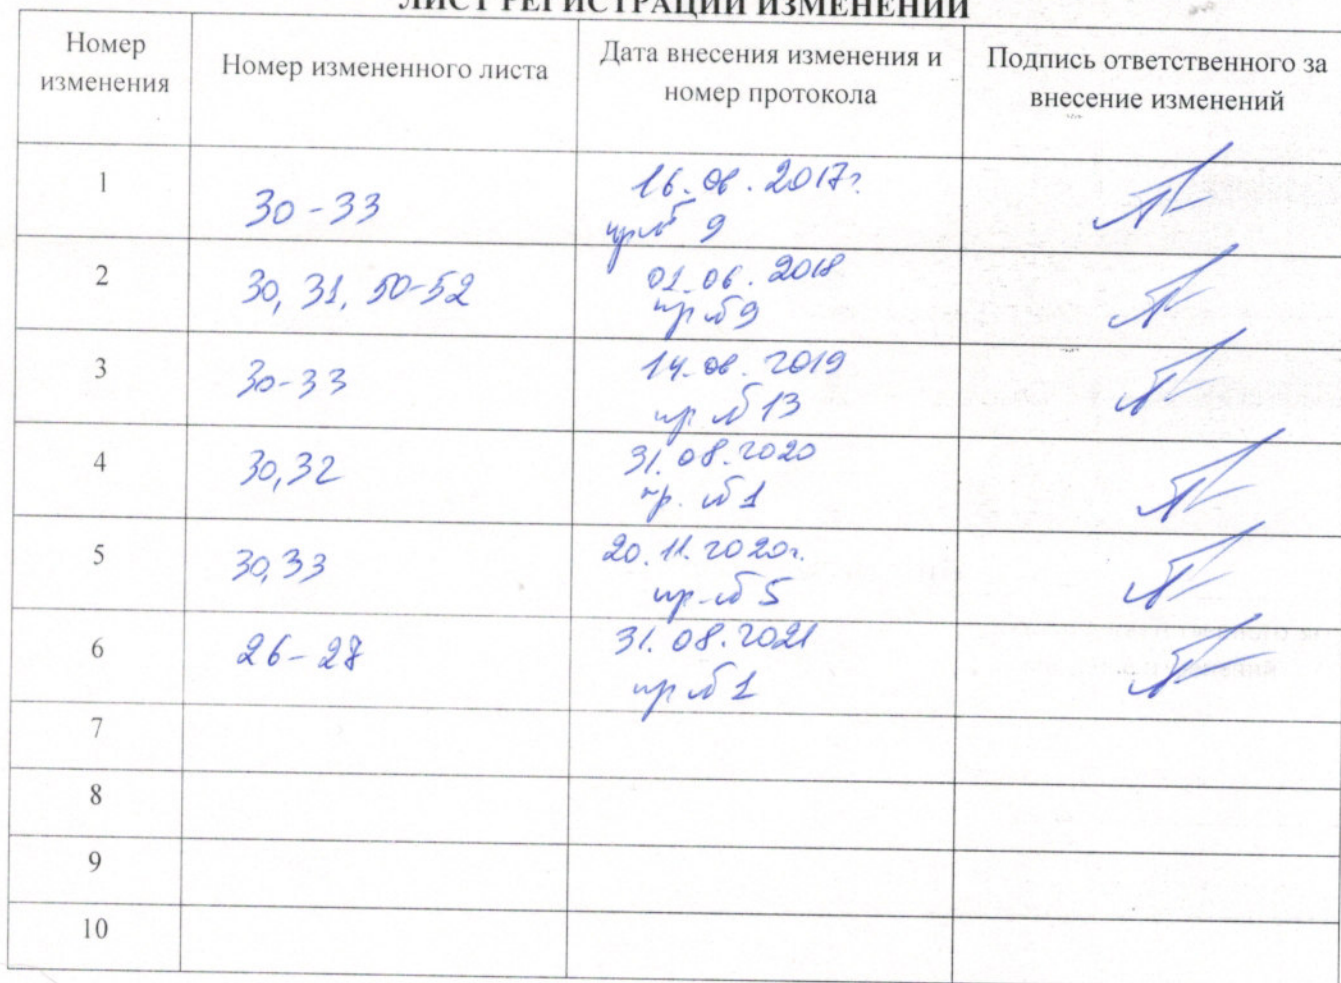 ЛИСТ РЕГИСТРАЦИИ ИЗМЕНЕНИЙ
Номер
изменения
Номер измененного листа
Дата внесения изменения и
номер протокола
Подпись ответственного за
внесение изменений
1
30-33
16.06.2017г.
пр № 9
2
30, 31, 50-52
01.06.2018
пр №9
3
30-33
14.06.2019
пр № 13
4
30,32
31.08.2020
пр. №1
5
30,33
20.11.2020г.
пр-№ 5
6
26-27
31.08.2021
пр №1
7
8
9
10